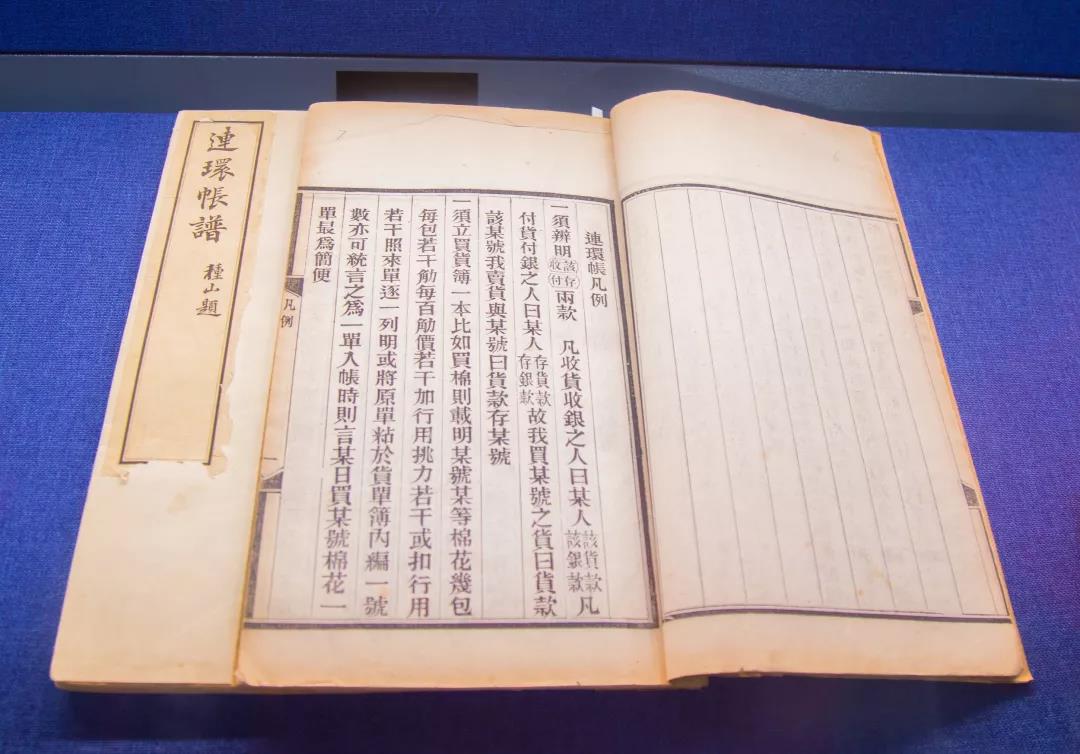 連環帳譜
種山題
連環帳凡例
一須辨明該存收付兩款 凡收貨收銀之人曰某人該貨款該銀款凡
付貨付銀之人曰某人存貨款存銀款故我買某號之貨曰貨款
該某號我賣貨與某號曰貨款存某號
一須立買貨簿一本比如買棉則載明某號某等棉花幾包
每包若干觔每百觔價若干加行用挑力若干或扣行用
若干照來單逐一列明或將原單粘於貨單簿內編一號
數亦可統言之爲一單入帳時則言某日買某號棉花一
單最爲簡便
凡例